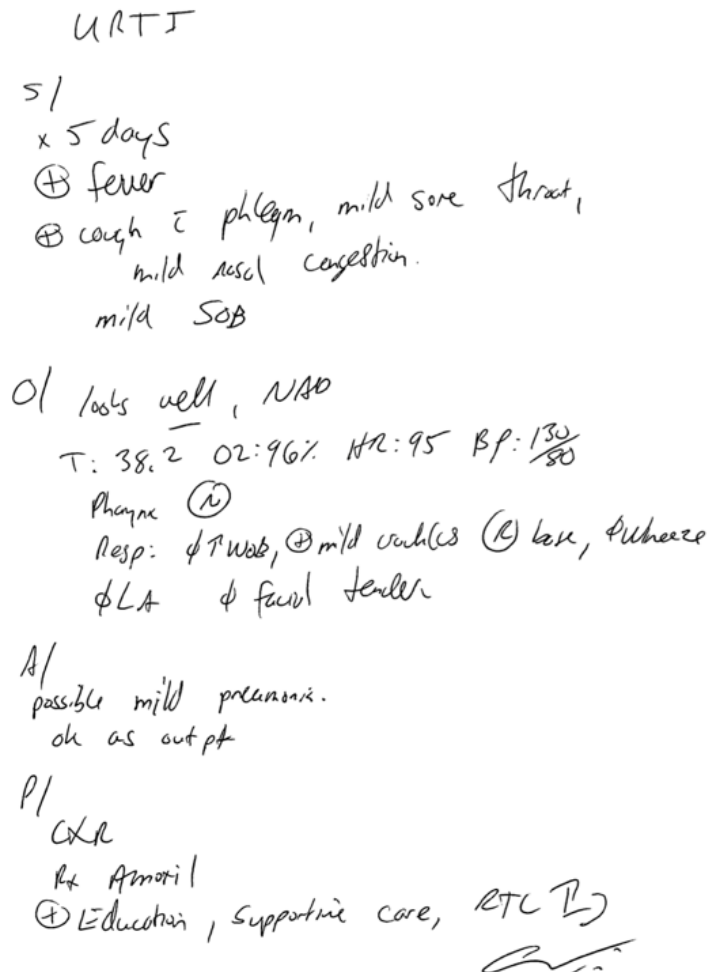 URTI
S/
x 5 days
⊕ fever
⊕ cough c̄ phlegm, mild sore throat,
mild nasal congestion.
mild SOB
O/ looks well, NAD
T: 38.2 O2:96% HR:95 BP:130/80
Pharynx Ⓝ
Resp: φ↑WOB, ⊕ mild crackles Ⓡ base, φwheeze
φLA φ facial tender
A/
possible mild pneumonia.
ok as outpt
P/
CXR
Rx Amoxil
⊕ Education, supportive care, RTC